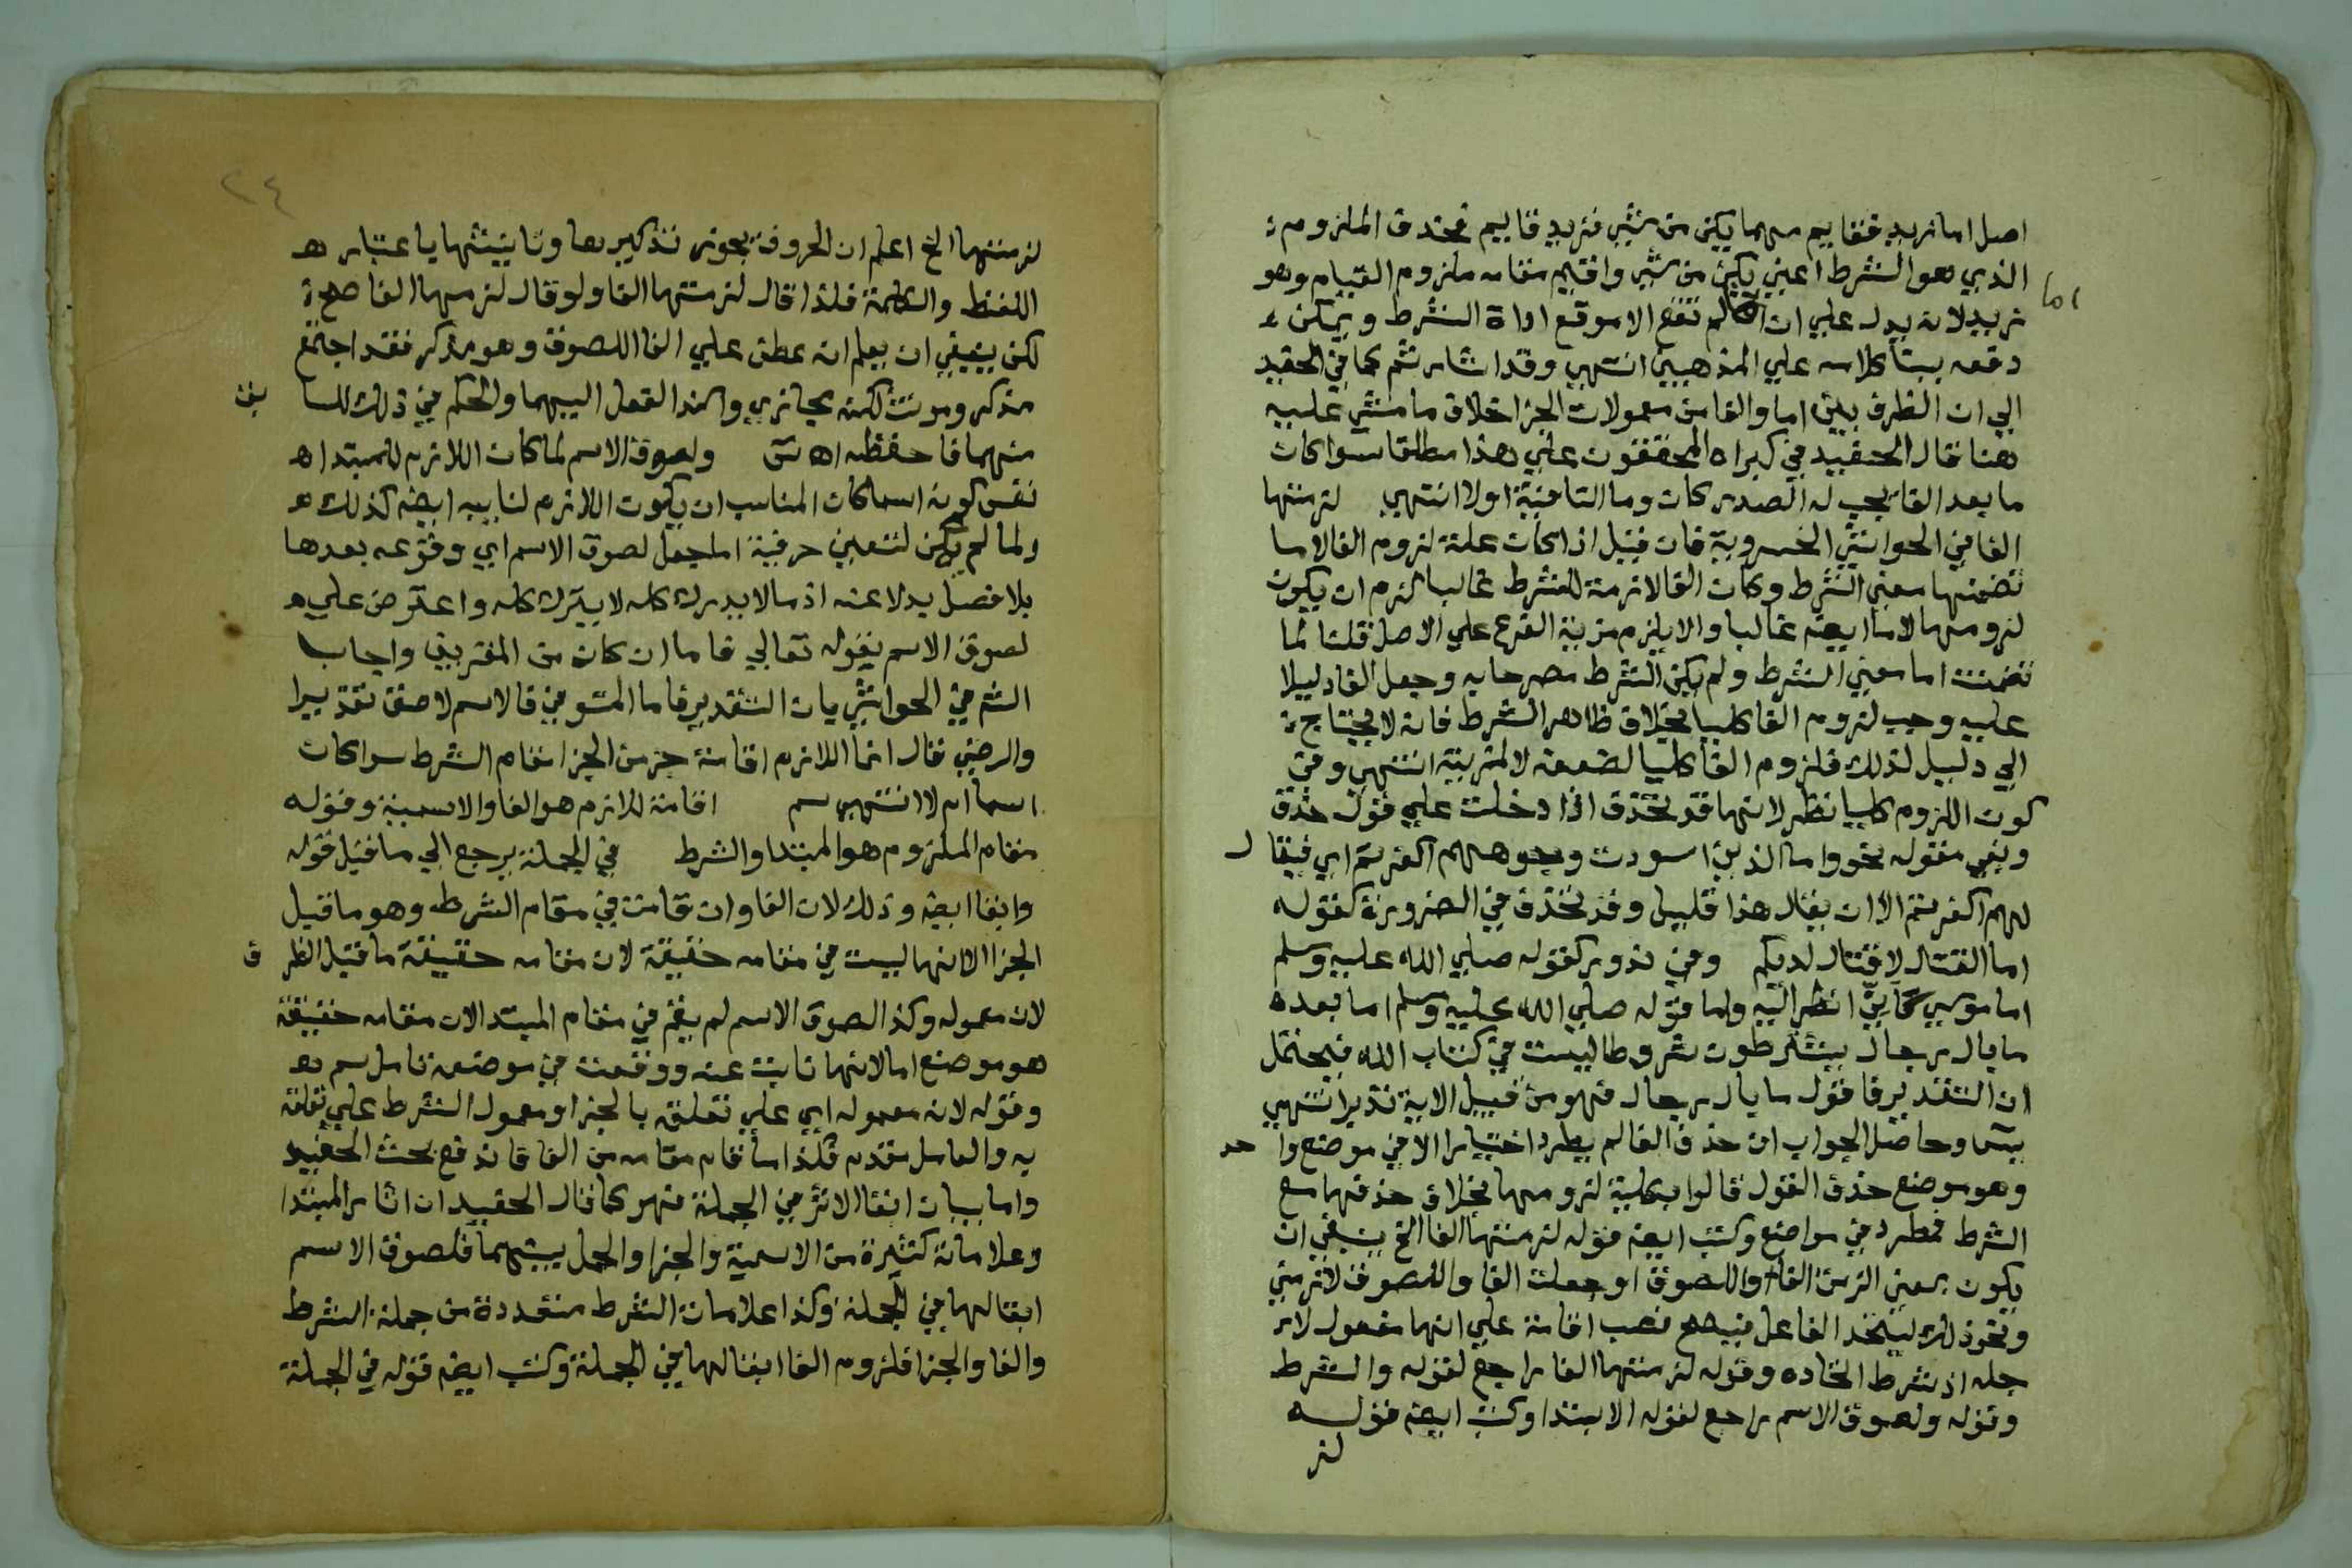 اصل اما زيد فقايم مهما يكن من شي فزيد قايم فحذف الملزوم
الذي هو الشرط اعني يكن من شي واقيم مقامه ملزوم القيام وهو
اما
زيد لانه يدل علي ان لم تقع الا موقع اداة الشرط ويمكن
دفعه ببنا كلامه علي المذهبين انتهي وقد اشار ثم كما في الحفيد
الي ان الظرف بين اما والفا من معمولات الجزا خلاف ما مشي عليه
هنا قال الحفيد في كبراه المحققون علي هذا مطلقا سوا كان
ما بعد الفا يجب له الصدر كان وما النافية اولا انتهي لزمتها
الفا في الحواشي الخسروية فان قيل اذا كان علة لزوم الفا لاما
تضمنها معني الشرط وكان الفا لازمة للشرط غالبا لزم ان يكون
لزومها لاما ايضه غالبا والا يلزم مزية الفرع علي الاصل قلنا لما
تضمنت اما معني الشرط ولم يكن الشرط مصرحا به وجعل الفا دليلا
عليه وجب لزوم الفا كليا بخلاف ظاهر الشرط فانه لا يحتاج
الي دليل لذلك فلزوم الفا كليا لضعفه لا لمزيته انتهي وفي
كون اللزوم كليا نظر لانها قد تحذف اذا دخلت علي قول حذف
وبقي مقوله نحو واما الذين اسودت وجوههم اكفرتم اي فيقال
لهم اكفرتم الا ان يقال هذا قليل وقد تحذف في الضرورة كقوله
اما القتال لا قتال لديكم وفي ندور كقوله صلي الله عليه وسلم
اما موسي كاني انظر اليه واما قوله صلي الله عليه وسلم اما بعد
ما بال رجال يشترطون شروطا ليست في كتاب الله فيحتمل
ان التقدير فاقول ما بال رجال فهو من قبيل الاية تدبر انتهي
يس وحاصل الجواب ان حذف الفا لم يطرد اختيارا الا في موضع واحد
وهو موضع حذف القول قالوا بكلية لزومها بخلاف حذفها مع
الشرط فمطرد في مواضع وكتب ايضه قوله لزمتها الفا الخ ينبغي ان
يكون بمعني الزمت الفا واللصوق او جعلت الفا واللصوق لازمتي
ونحو ذلك ليتحد الفاعل فيصح نصب اقامة علي انها مفعول لاجله
اذ شرط اتحاده وقوله لزمتها الفا راجع لقوله والشرط
وقوله ولصوق الاسم راجع لقوله الابتدا وكتب ايضه قوله
لز
٢٤
لزمتها الخ اعلم ان الحروف يجوز تذكيرها وتانيثها باعتبار
اللفظ والكلمة فلذا قال لزمتها الفا ولو قال لزمها الفا صح
لكن ينبغي ان يعلم انه عطف علي الفا اللصوق وهو مذكر فقد اجتمع
مذكر ومونث لكنه مجازي واسند الفعل اليهما والحكم في ذلك للسابق
منهما فاحفظه اه ش ولصوق الاسم لما كان اللازم للمبتدا
نفس كونه اسما كان المناسب ان يكون اللازم لنايبه ايضه كذلك
ولما لم يكن لتعين حرفية اما جعل لصوق الاسم اي وقوعه بعدها
بلا فصل بدلا عنه اذ ما لا يدرك كله لا يترك كله واعترض علي
لصوق الاسم بقوله تعالي فاما ان كان من المقربين واجاب
الشم في الحواشي بان التقدير فاما المتوفي فالاسم لاصق تقديرا
والرضي قال انما اللازم اقامة جز من الجزا مقام الشرط سوا كان
اسما ام لا انتهي سم اقامة للازم هو الفا والاسمية وقوله
مقام الملزوم هو المبتدا والشرط في الجملة يرجع الي ما قيل قوله
وابقا ايضه وذلك لان الفا وان قامت في مقام الشرط وهو ما قبل
الجزا الا انها ليست في مقامه حقيقة لان مقامه حقيقة ما قبل الظرف
لانه معموله وكذا لصوق الاسم لم يقم في مقام المبتدا لان مقامه حقيقة
هو موضع اما لانها نابت عنه ووقعت في موضعه تامل سم
وقوله لانه معموله اي علي تعلقه بالجزا او معمول الشرط علي تعلقه
به والعامل مقدم فكذا ما قام مقامه من الفا فاندفع بحث الحفيد
واما بيان ابقا الاثر في الجملة فهو كما قال الحفيد ان اثار المبتدا
وعلاماته كثيرة من الاسمية والجزا والحمل بينهما فلصوق الاسم
ابقا لها في الجملة وكذا علامات الشرط متعددة من جملة الشرط
والفا والجزا فلزوم الفا ابقا لها في الجملة وكتب ايضه قوله في الجملة